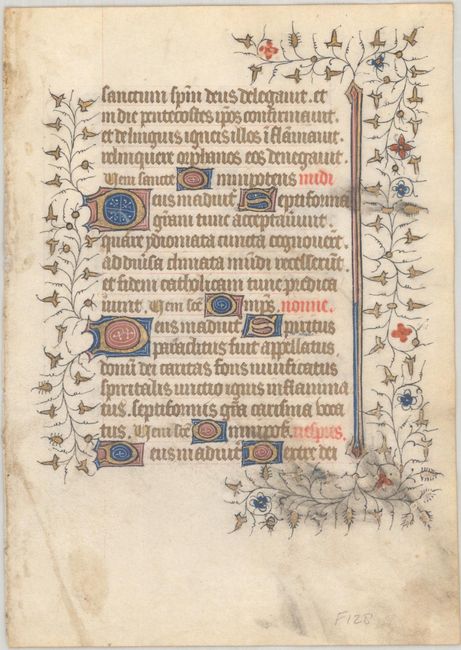 sanctum spm deus delegavit. et
in die pentecostes ipos confirmavit
et de linguis igneis illos iflamavit
relinquere orphanos eos denegavit.
Veni sancte Omnipotens midi
Deus in adiut Septiforma
gram tunc acceptaverunt
quare ydiomata cuncta cognover
ad divsa climata mundi recesserut
et fidem catholicam tunc predica
verunt. Veni sce Omps. nonne.
Deus in adiut Spiritus
paraclitus fuit appellatus
donu dei caritas fons vivificatus
spiritalis unctio ignis inflamma
tus. septiformis gra carisma voca
tus. Veni sce Omnipos. vespus.
Deus in adiut Dextre dei
F128